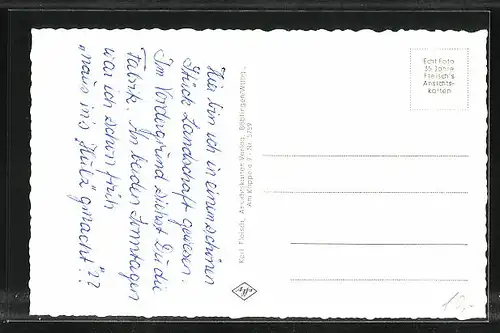 Hier bin ich in einem schönen
Stück Landschaft gewesen.
Im Vordergrund siehst Du die
Fabrik. An beiden Sonntagen
war ich schon früh
"naus in's
gmacht"??
Karl Fleisch, Ansichtskarten-Verlag, Böblingen/Württ.
Am Käppele 7, Nr.
Echt Foto
35 Jahre
Fleisch's
Ansichts-
karten